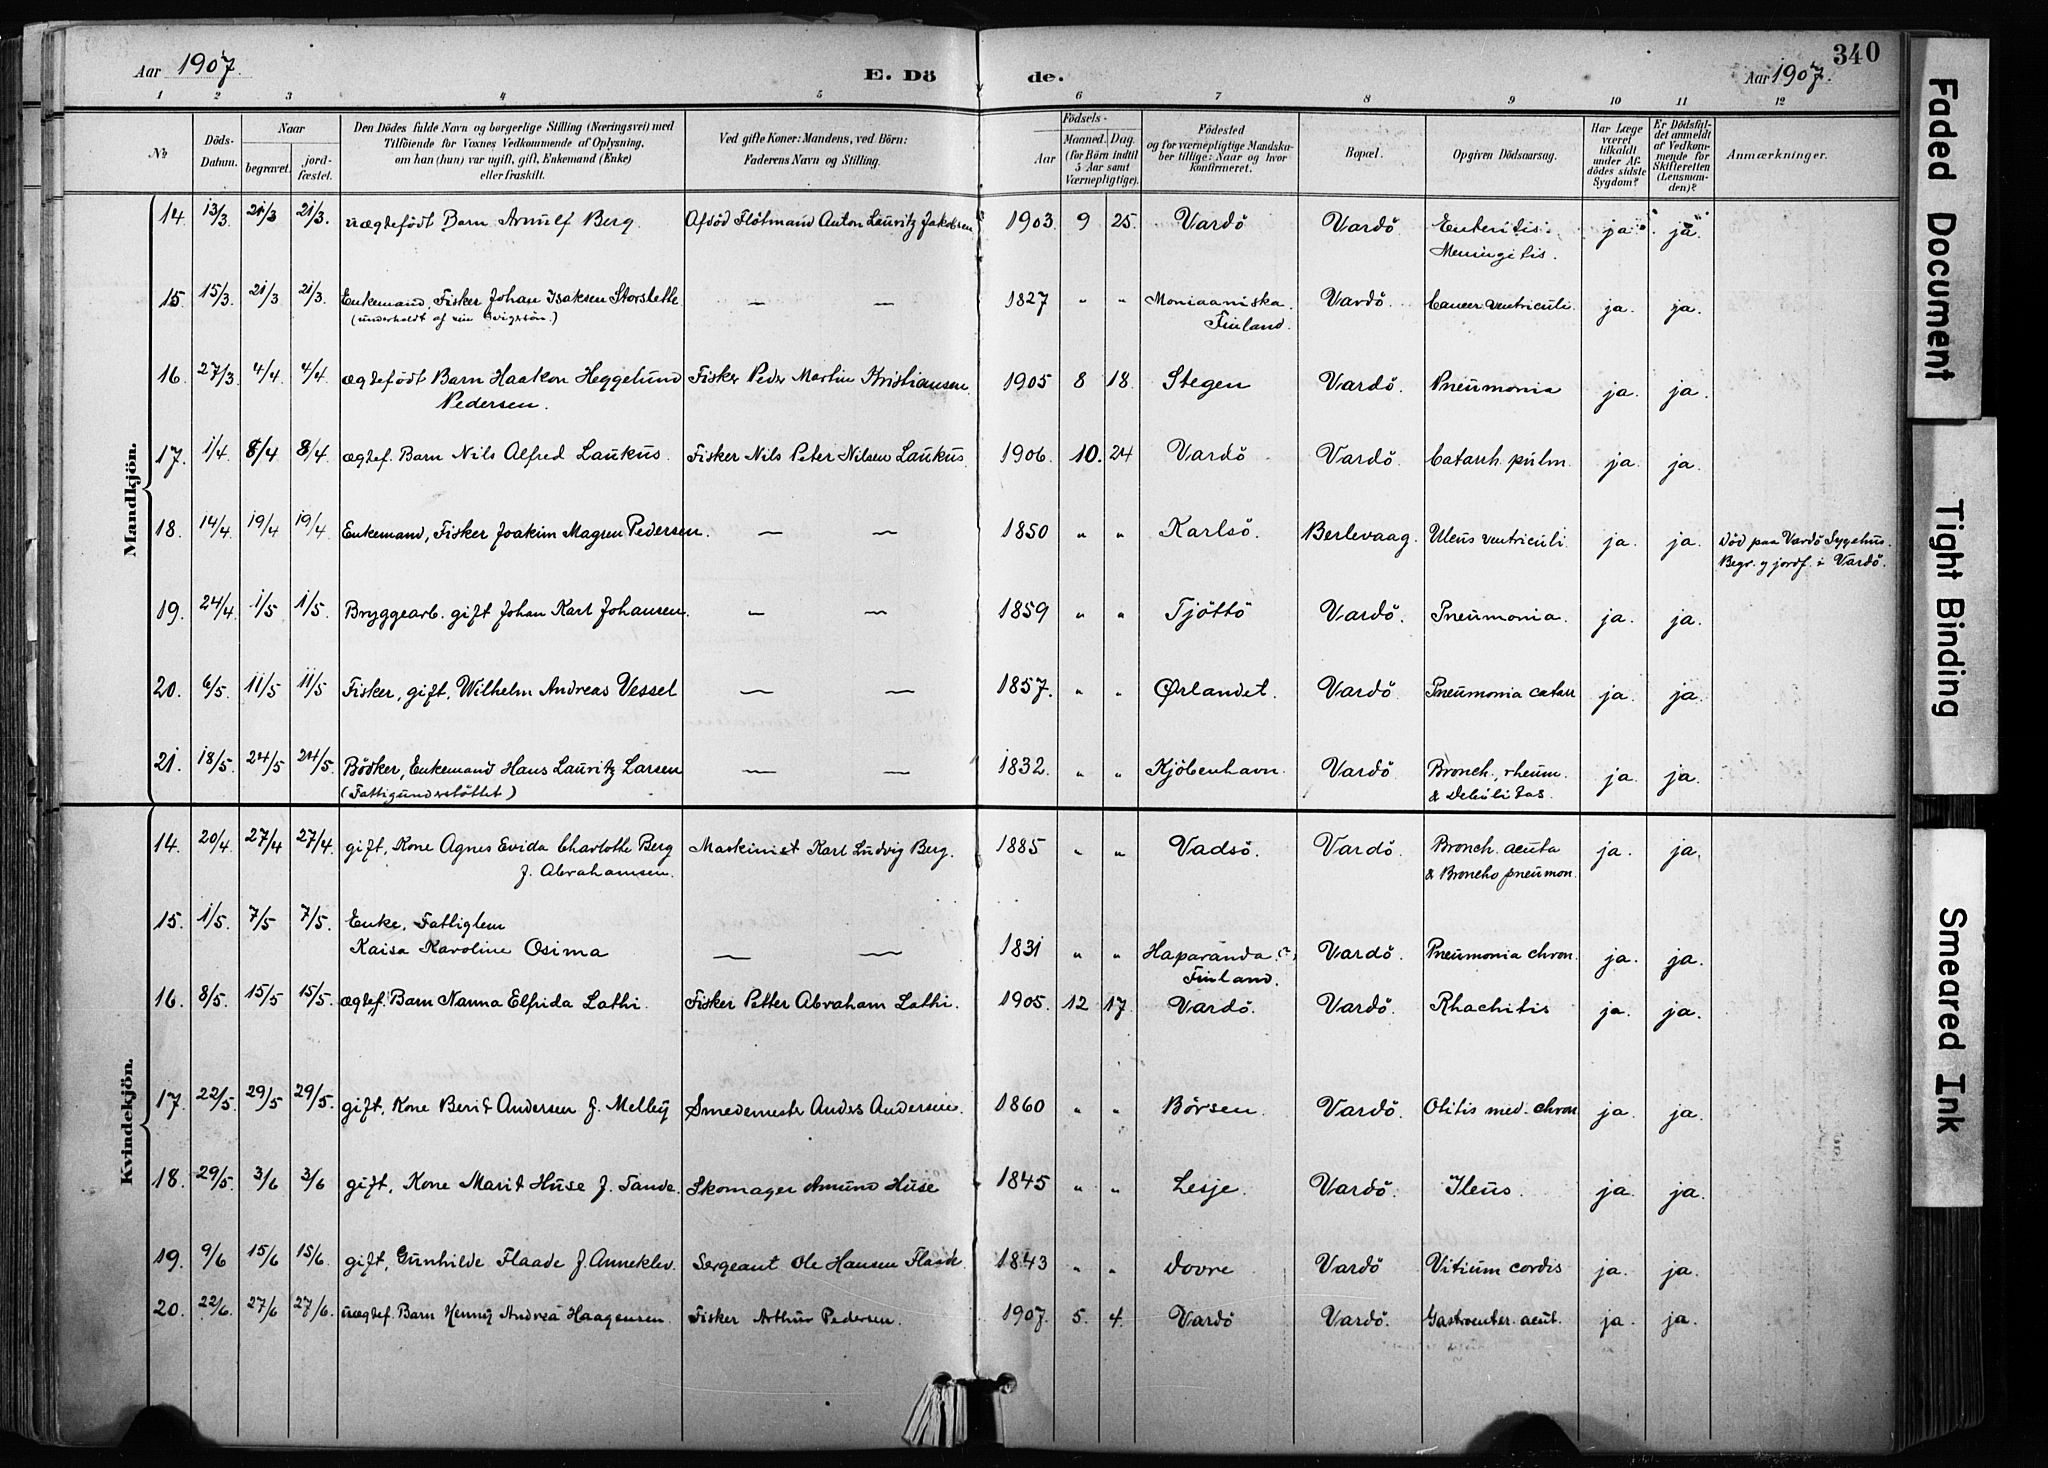 Aar 1907. E. Dö de. Aar 1907. 340
1 2 3 4 5 6 7 8 9 10 11 12
№ Döds-Datum. Naar begravet. jord-fæstet. Den Dödes fulde Navn og borgerlige Stilling (Næringsvei) med Tilföiende for Voxnes Vedkommende af Oplysning, om han (hun) var ugift, gift, Enkemand (Enke) eller fraskilt. Ved gifte Koner: Mandens, ved Börn: Faderens Navn og Stilling. Födsels- Aar Maaned. Dag. (for Börn indtil 5 Aar samt Værnepligtige). Födested og for værnepligtige Mandskaber tillige: Naar og hvor konfirmeret. Bopæl. Opgiven Dödsaarsag. Har Læge været tilkaldt under Afdödes sidste Sygdom? Er Dödsfaldet anmeldt af Vedkommende for Skifteretten (Lensmanden)? Anmærkninger.
Mandkjön.
14. 13/3 21/3 21/3. uægtefödt Barn Arnulf Berg. Afdöd Flötmand Anton Lauritz Jakobsen 1903 9 25. Vardö Vardö Enteritis. ja. ja.
Meningitis.
15. 15/3. 21/3 21/3. Enkemand, Fisker Johan Isaksen Storslette — — 1827 " " Moniaaniska. Vardö. Cancer ventriculi. ja. ja.
(underholdt af sin Svigersön.) Finland.
16. 27/3. 4/4. 4/4. ægtefödt Barn Haakon Heggelund Fisker Peder Martin Kristiansen 1905 8 18. Stegen Vardö. Pneumonia ja. ja.
Pedersen.
17. 1/4. 8/4 8/4 ægtef. Barn Nils Alfred Laukus. Fisker Nils Peter Nilsen Laukus. 1906. 10. 24 Vardö Vardö. Catarrh. pulm. ja. ja.
18. 14/4. 19/4 19/4 Enkemand, Fisker Joakim Magsen Pedersen. — — 1850 " " Karlsö. Berlevaag. Ulcus ventriculi. ja. ja. Död paa Vardö Sygehus.
Begr. og jordf. i Vardö.
19. 24/4. 1/5 1/5. Bryggearb. gift Johan Karl Johansen. — — 1859 " " Tjöttö Vardö. Pneumonia. ja. ja.
20. 6/5. 11/5 11/5 Fisker, gift, Wilhelm Andreas Vessel — — 1857. " " Ørlandet. Vardö. Pneumonia catarr ja. ja.
21. 18/5. 24/5 24/5. Bödker, Enkemand Hans Lauritz Larsen — — 1832. " " Kjöbenhavn. Vardö. Bronch. rheum. ja. ja.
(Fattigunderstöttet) & Debilitas.
Kvindekjön.
14. 20/4. 27/4 27/4. gift, Kone Agnes Evida Charlotte Berg Maskinist Karl Ludvig Berg. 1885 " " Vadsö. Vardö. Bronch. acuta ja. ja.
f. Abrahamsen. & Broncho pneumon.
15. 1/5. 7/5 7/5. Enke, Fattiglem
Kaisa Karoline Osima — — 1831 " " Haparanda (?) Vardö. Pneumonia chron. ja. ja.
Finland.
16. 8/5. 15/5 15/5. ægtef. Barn Nanna Elfrida Lathi. Fisker Petter Abraham Lathi. 1905. 12 17. Vardö. Vardö. Rhachitis ja. ja.
17. 22/5. 29/5 29/5. gift, Kone Berit Andersen f. Melby Smedemestr Anders Andersen. 1860 " " Börsen. Vardö. Otitis med. chron ja. ja.
18. 29/5. 3/6 3/6 gift, Kone Marit Huse f. Tande. Skomager Amund Huse 1845 " " Lesje. Vardö. Ileus. ja. ja.
19. 9/6 15/6 15/6. gift, Gunhilde Flaade f. Anneklev. Sergeant Ole Hansen Flaade. 1843 " " Dovre Vardö Vitium cordis ja. ja.
20. 22/6. 27/6 27/6. uægtef. Barn Henny Andrea Haagensen. Fisker Arthur Pedersen. 1907. 5. 4. Vardö Vardö. Gastroenter. acut. ja. ja.
Faded Document
Tight Binding
Smeared Ink